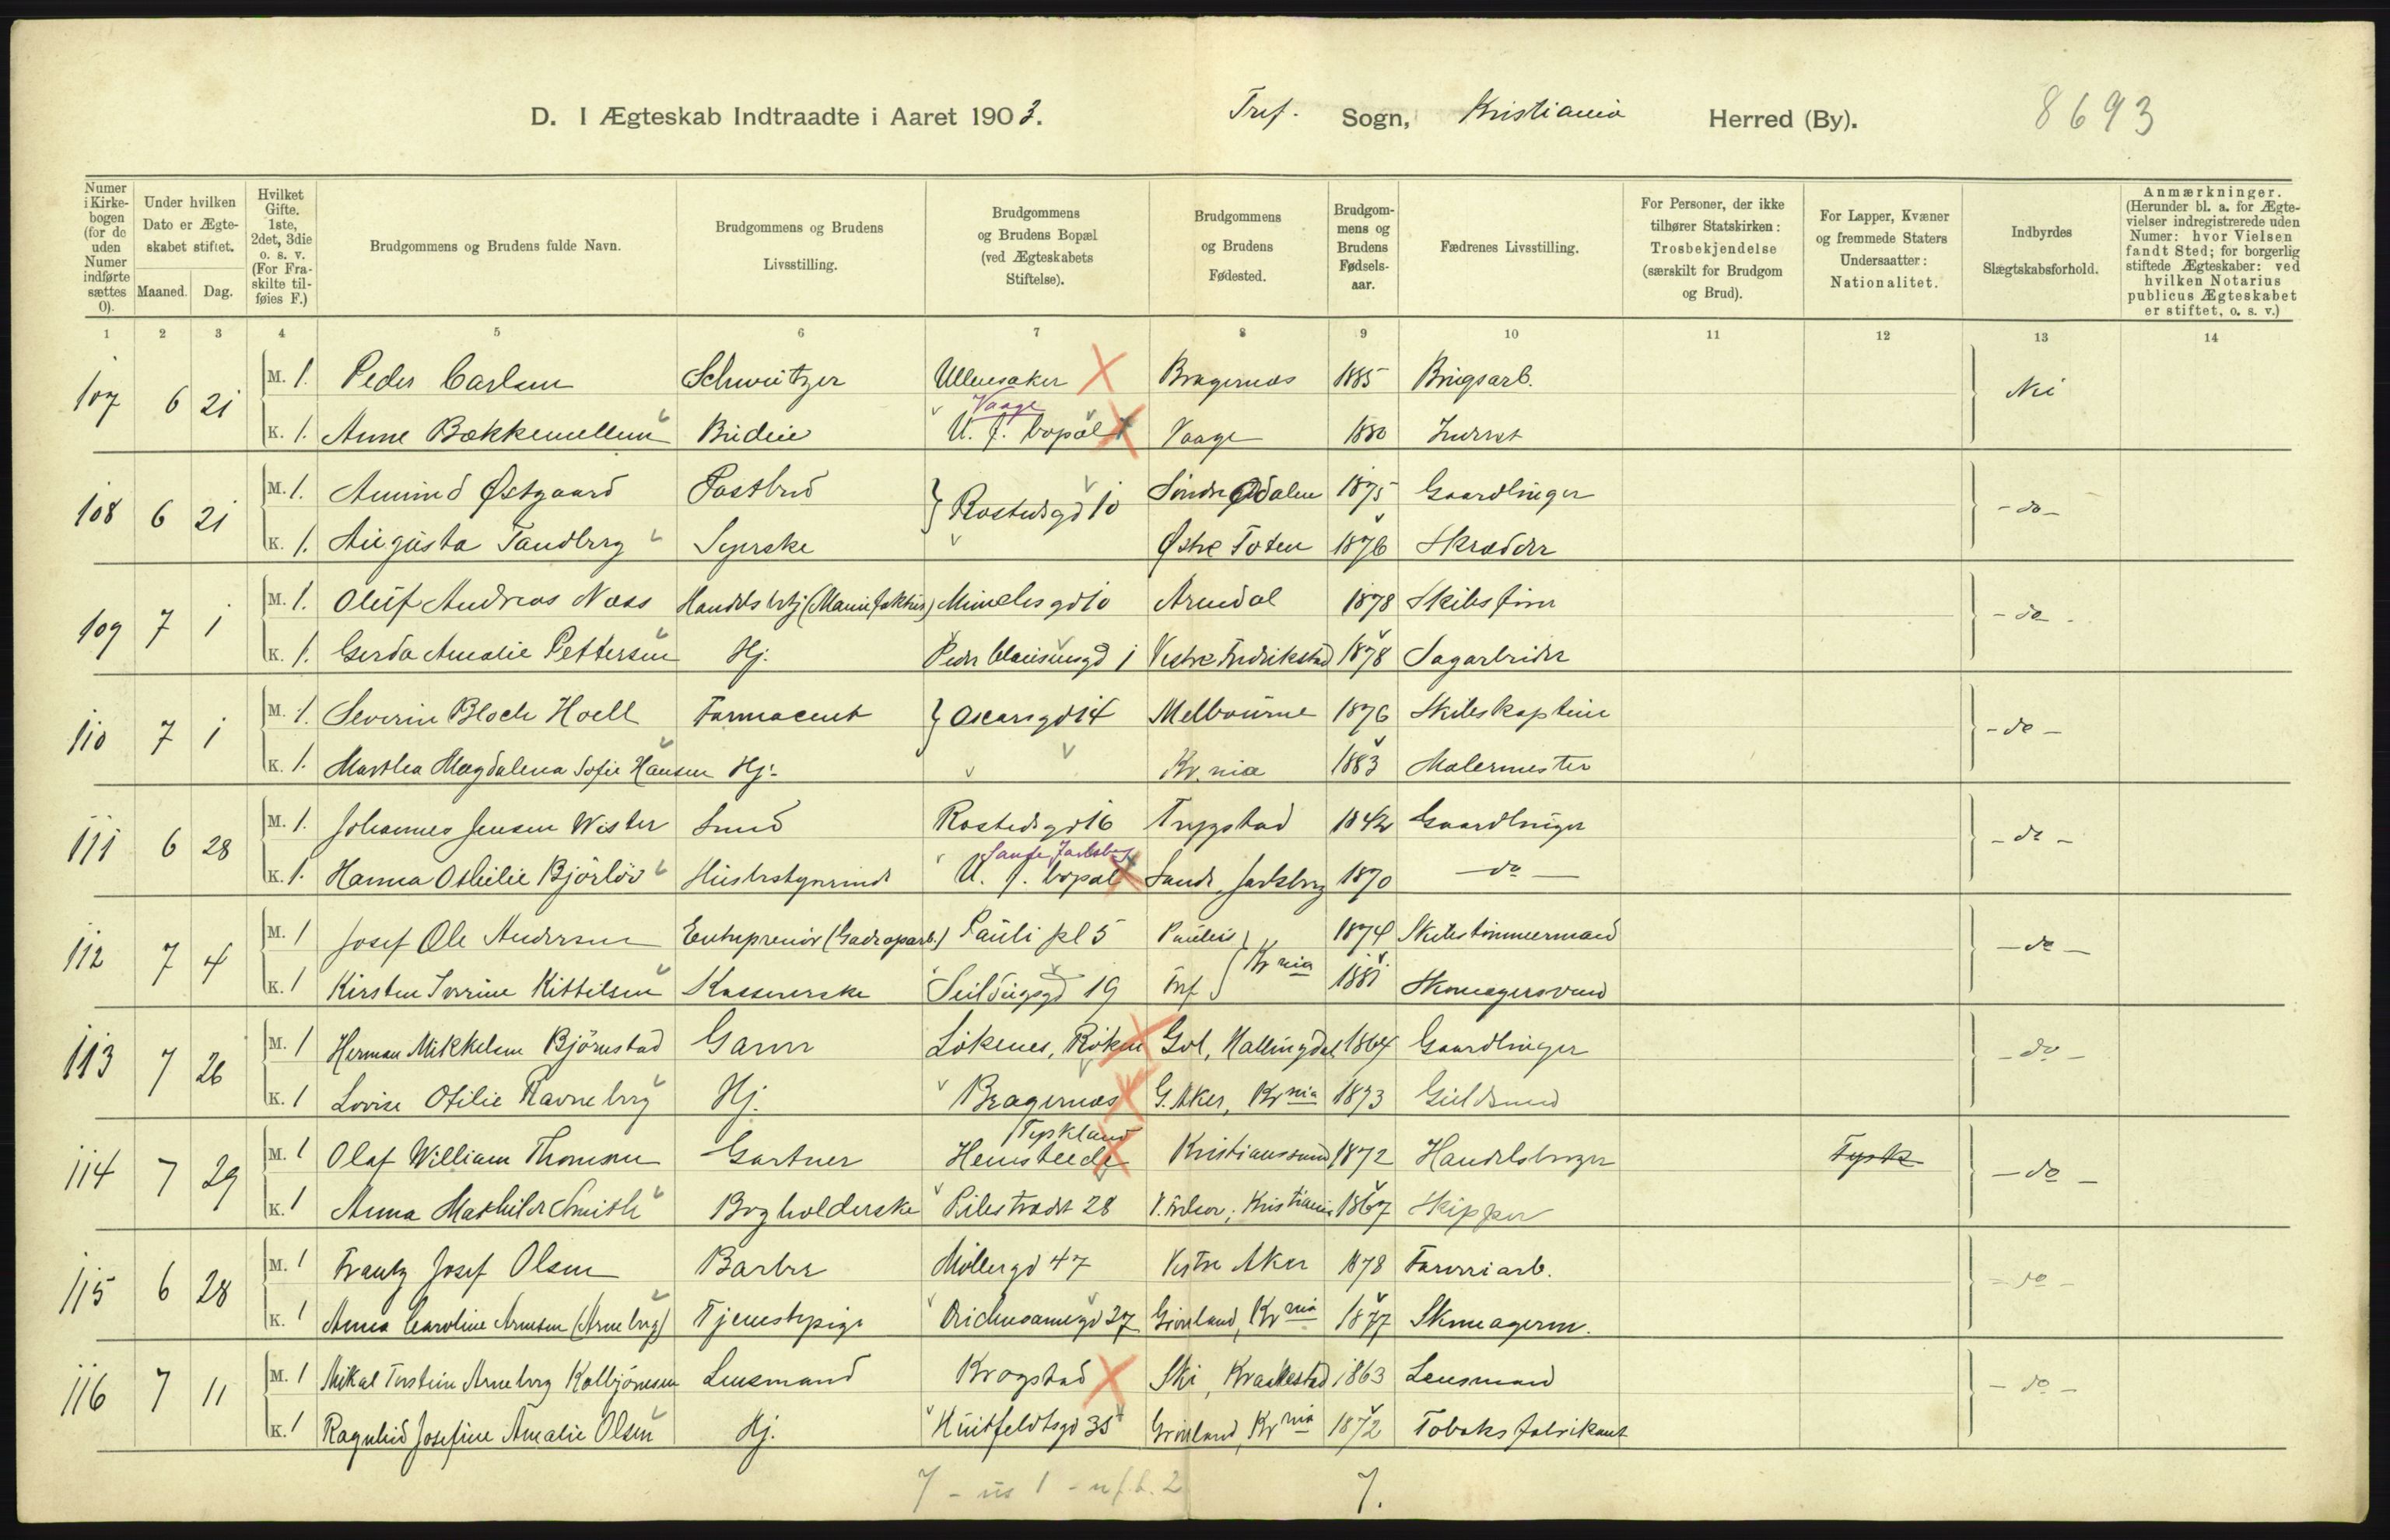 D. I Ægteskab Indtraadte i Aaret 1903. Tref. Sogn, Kristiania Herred (By). 8693
Numer i Kirkebogen (for de uden Numer indførte sættes 0).
Under hvilken Dato er Ægteskabet stiftet.
Maaned. Dag.
Hvilket Gifte. 1ste, 2det, 3die o. s. v. (For Fraskilte tilføies F.)
Brudgommens og Brudens fulde Navn.
Brudgommens og Brudens Livsstilling.
Brudgommens og Brudens Bopæl (ved Ægteskabets Stiftelse).
Brudgommens og Brudens Fødested.
Brudgommens og Brudens Fødselsaar.
Fædrenes Livsstilling.
For Personer, der ikke tilhører Statskirken: Trosbekjendelse (særskilt for Brudgom og Brud).
For Lapper, Kvæner og fremmede Staters Undersaatter: Nationalitet.
Indbyrdes Slægtskabsforhold.
Anmærkninger. (Herunder bl. a. for Ægtevielser indregistrerede uden Numer: hvor Vielsen fandt Sted; for borgerlig stiftede Ægteskaber: ved hvilken Notarius publicus Ægteskabet er stiftet, o. s. v.)
1 2 3 4 5 6 7 8 9 10 11 12 13 14
107 6 21 M. 1. Peder Carlsen Schweitzer Ullensaker Bragernæs 1885 Brugsarb. Nei
Vaage
K. 1. Anne Bækkemellem Budeie U. f. bopæl Vaage 1880 Inderst
108 6 21 M. 1. Amund Østgaard Postbud Rostedsgd 10 Søndre Odalen 1875 Gaardbruger - do -
K. 1. Augusta Sandberg Syerske Østre Toten 1876 Skrædder
109 7 1 M. 1. Oluf Andreas Næss Handelsbetj (Manufaktur) Munchsgd 10 Arendal 1878 Skibstøm - do -
K. 1. Gerda Amalie Pettersen Hj. Peder Clausensgd 1 Vestre Fredrikstad 1878 Sagarbeider
110 7 1 M. 1. Severin Bloch Hoell Farmaceut Oscarsgd 14 Melbourne 1876 Skibskaptein - do -
K. 1. Marthea Magdalena Sofie Hansen Hj. Kr.nia 1883 Malermester
111 6 28 M. 1. Johannes Jensen Wister Smed Rostedsgd 16 Trygstad 1842 Gaardbruger - do -
Sande Jarlsberg
K. 1. Hanna Othilie Bjørløv Husbestyrerinde U. f. bopæl Sande, Jarlsberg 1870 - do -
112 7 4 M. 1 Josef Ole Andersen Entreprenør (Gadeoparb.) Pauli pl 5 Paulus Kr nia 1874 Skibstømmermand - do -
K. 1 Kirsten Severine Kittelsen Kassererske Seildugsgd 19 Tref 1881 Skomagersvend
113 7 26 M. 1 Herman Mikkelsen Bjørnstad Garver Løkenes, Røken Gol, Hallingdal 1864 Gaardbruger - do -
K. 1 Lovise Otilie Ravneberg Hj. Bragernæs G. Aker, Kr nia 1873 Guldsmed
Tyskland
114 7 29 M. 1 Olaf William Thomsen Gartner Hemsteede Kristianssund 1872 Handelsborger Tysk - do -
K. 1 Anna Mathilde Smith Bogholderske Pilestrædet 28 V. Frelser, Kristiania 1867 Skipper
115 6 28 M. 1 Frantz Josef Olsen Barber Møllergd 47 Vestre Aker 1878 Farveriarb. - do -
K. 1 Anna Caroline Arnesen (Arneberg) Tjenestepige 27 Grønland, Kr nia 1877 Skomagerm.
116 7 11 M. 1 Mikal Torstein Arneberg Kolbjørnsen Lensmand Krogstad Ski, Kraakestad 1863 Lensmand - do -
K. 1 Ragnhild Josefine Amalie Olsen Hj. Huitfeldtsgd 35 Grønland, Kr nia 1872 Tobaksfabrikant
7 - us 1 - u.f.b. 2 7.